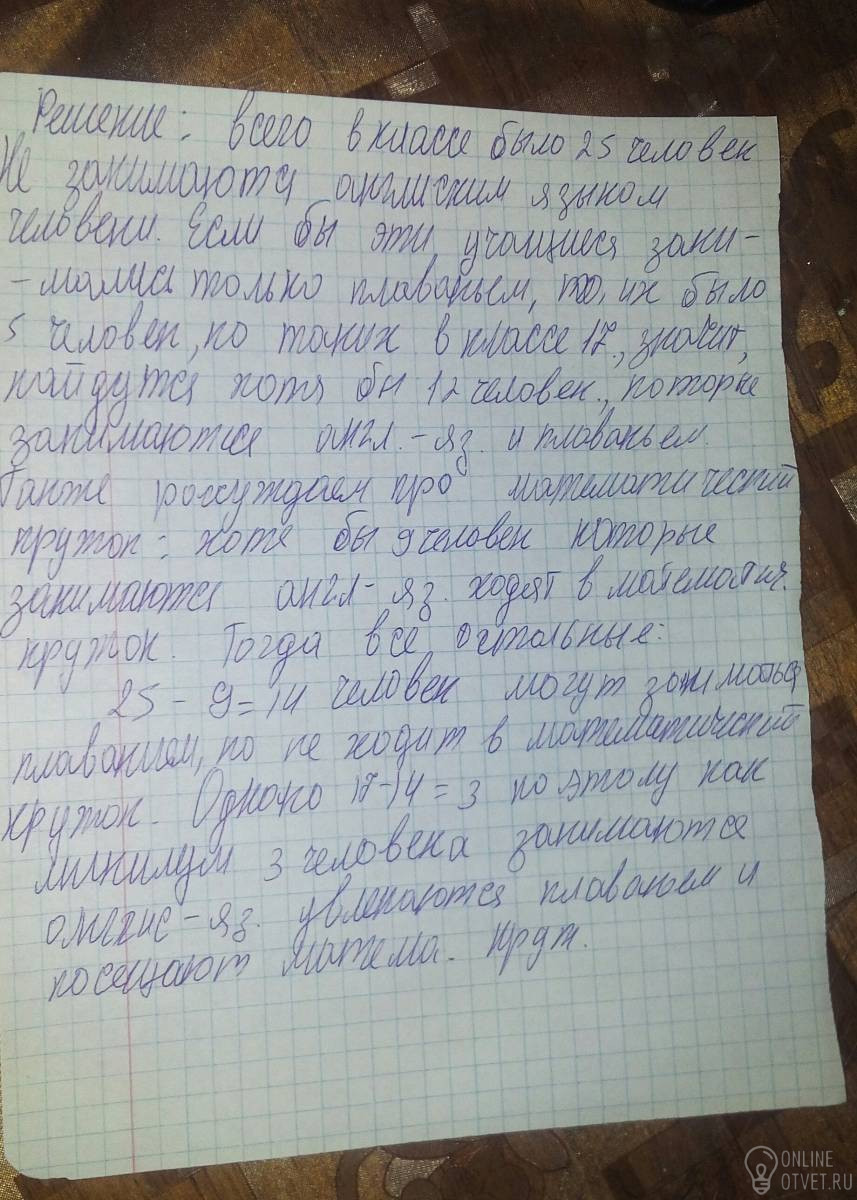 Решение: всего в классе было 25 человек
Не занимаются англиским языком
человеки. Если бы эти учащиеся зани-
-мались только плаваньем, то, их было
5 человек, но таких в классе 17, значит,
найдутся хотя бы 12 человек, которые
занимаются англ.-яз. и плаваньем.
Также рассуждаем про математический
кружок: хотя бы 9 человек которые
занимаются англ-яз. ходят в математич.
кружок. Тогда все остальные:
25-9=14 человек могут заниматься
плаванием, но не ходит в математический
кружок. Однако 17-14=3 по этому как
минимум 3 человека занимаются
-яз. увлекаются плаваньем и
посещают матема. круж.
ONLINE
OTVET.RU